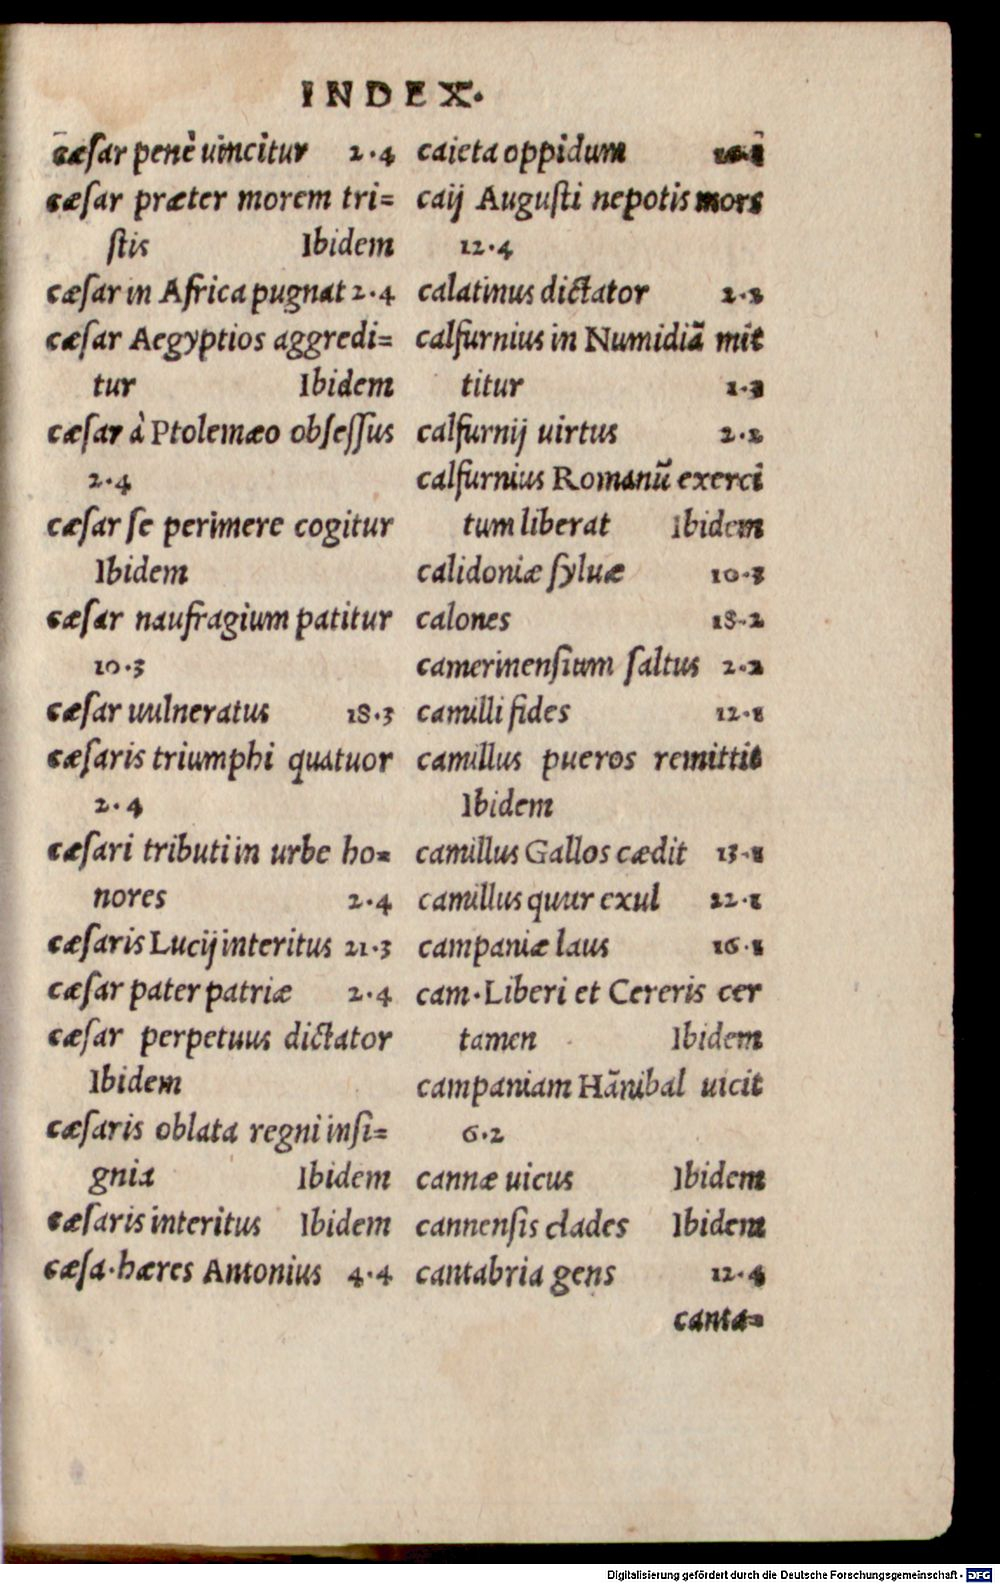 INDEX.
cæſar penè uincitur 2.4
cæſar præter morem tri=
ſtis Ibidem
cæſar in Africa pugnat 2.4
cæſar Aegyptios aggredi=
tur Ibidem
cæſar à Ptolemæo obſeſſus
2.4
cæſar ſe perimere cogitur
Ibidem
cæſar naufragium patitur
10.3
cæſar uulneratus 18.3
cæſaris triumphi quatuor
2.4
cæſari tributi in urbe ho=
nores 2.4
cæſaris Lucij interitus 21.3
cæſar pater patriæ 2.4
cæſar perpetuus dictator
Ibidem
cæſaris oblata regni inſi=
gnia Ibidem
cæſaris interitus Ibidem
cæſa.hæres Antonius 4.4
caieta oppidum
caij Auguſti nepotis mors
12.4
calatinus dictator 2.2
calfurnius in Numidiã mit
titur 1.3
calfurnij uirtus 2.2
calfurnius Romanũ exerci
tum liberat Ibidem
calidoniæ ſyluæ 10.3
calones 18.2
camerinenſium ſaltus 2.2
camilli fides 12.1
camillus pueros remittit
Ibidem
camillus Gallos cædit 13.1
camillus quur exul 22.1
campaniæ laus 16.1
cam.Liberi et Cereris cer
tamen Ibidem
campaniam Hãnibal uicit
6.2
cannæ uicus Ibidem
cannenſis clades Ibidem
cantabria gens 12.4
canta=
Digitalisierung gefördert durch die Deutsche Forschungsgemeinschaft - DFG